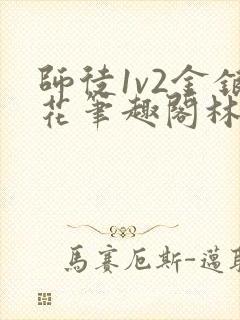 師徒1v2金銀
花筆趣閣林
馬賽厄斯-邁耶